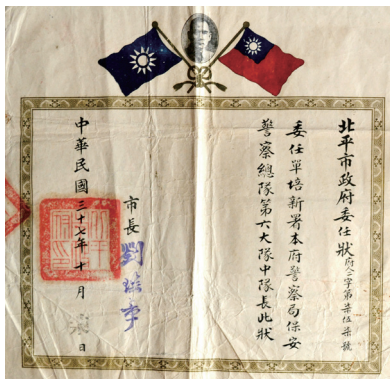 北平市政府委任狀府人二字第柒伍柒號
委任單培新署本府警察局保安
警察總隊第六大隊中隊長此狀
市長劉瑤章
中華民國三十七年十月 日